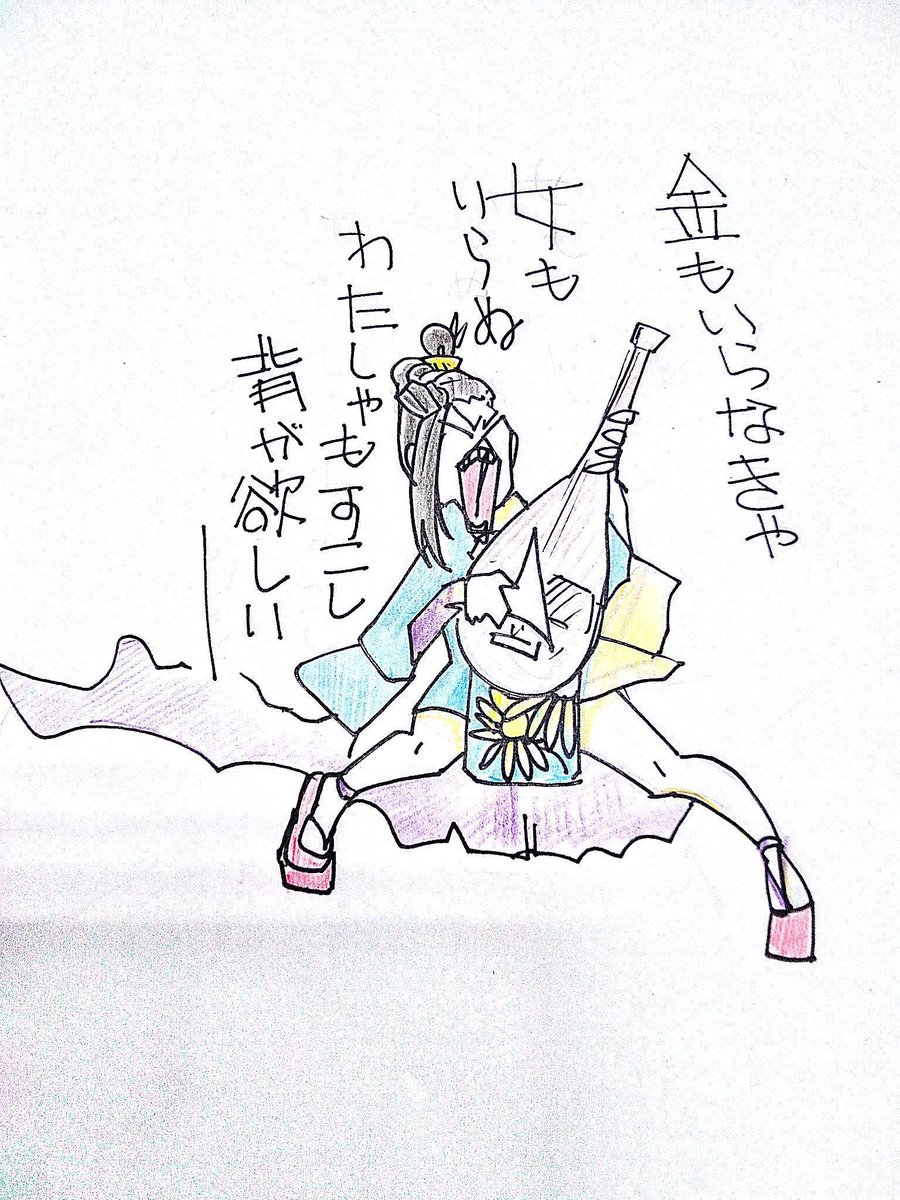 金もいらなきゃ
女も
いらぬ
わたしゃもすこし
背が欲しい